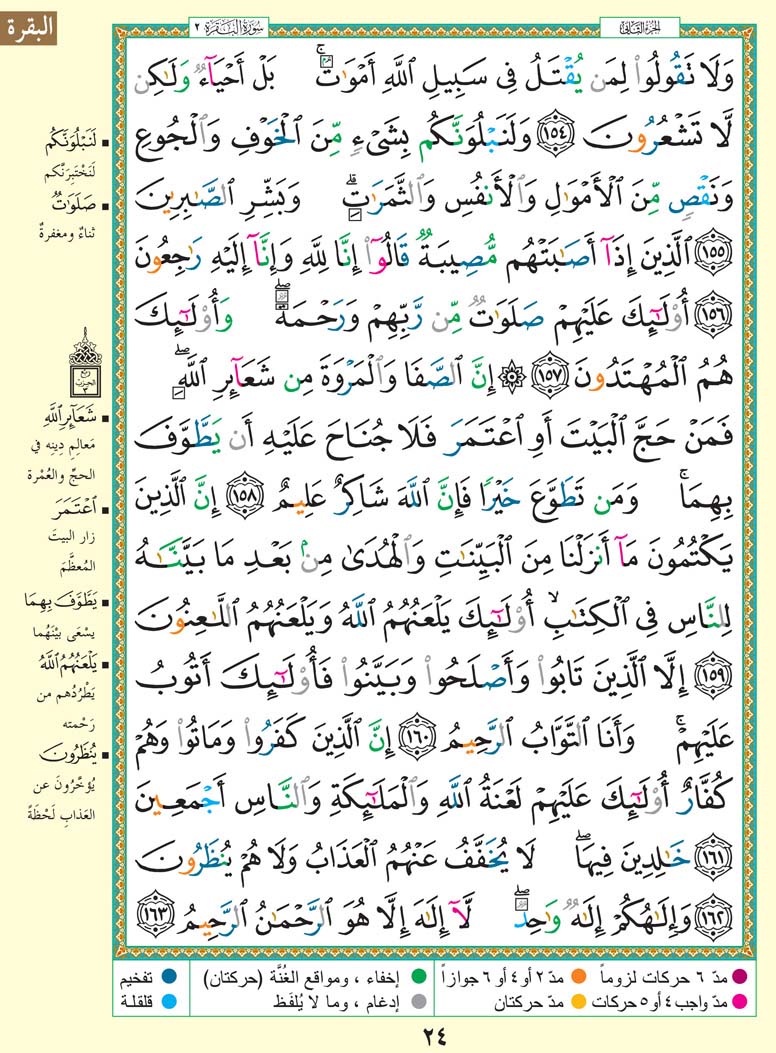 البقرة
سُورَةُ البَقَرَة ٢
الجزء الثاني
وَلَا تَقُولُوا۟ لِمَن يُقْتَلُ فِى سَبِيلِ ٱللَّهِ أَمْوَٰتٌۢ ۚ بَلْ أَحْيَآءٌ وَلَـٰكِن
لَّا تَشْعُرُونَ ١٥٤ وَلَنَبْلُوَنَّكُم بِشَىْءٍ مِّنَ ٱلْخَوْفِ وَٱلْجُوعِ
وَنَقْصٍ مِّنَ ٱلْأَمْوَٰلِ وَٱلْأَنفُسِ وَٱلثَّمَرَٰتِ ۗ وَبَشِّرِ ٱلصَّـٰبِرِينَ
١٥٥ ٱلَّذِينَ إِذَآ أَصَـٰبَتْهُم مُّصِيبَةٌ قَالُوٓا۟ إِنَّا لِلَّهِ وَإِنَّآ إِلَيْهِ رَٰجِعُونَ
١٥٦ أُو۟لَـٰٓئِكَ عَلَيْهِمْ صَلَوَٰتٌ مِّن رَّبِّهِمْ وَرَحْمَةٌ ۖ وَأُو۟لَـٰٓئِكَ
هُمُ ٱلْمُهْتَدُونَ ١٥٧ ۞ إِنَّ ٱلصَّفَا وَٱلْمَرْوَةَ مِن شَعَآئِرِ ٱللَّهِ ۖ
فَمَنْ حَجَّ ٱلْبَيْتَ أَوِ ٱعْتَمَرَ فَلَا جُنَاحَ عَلَيْهِ أَن يَطَّوَّفَ
بِهِمَا ۚ وَمَن تَطَوَّعَ خَيْرًا فَإِنَّ ٱللَّهَ شَاكِرٌ عَلِيمٌ ١٥٨ إِنَّ ٱلَّذِينَ
يَكْتُمُونَ مَآ أَنزَلْنَا مِنَ ٱلْبَيِّنَـٰتِ وَٱلْهُدَىٰ مِنۢ بَعْدِ مَا بَيَّنَّـٰهُ
لِلنَّاسِ فِى ٱلْكِتَـٰبِ ۙ أُو۟لَـٰٓئِكَ يَلْعَنُهُمُ ٱللَّهُ وَيَلْعَنُهُمُ ٱللَّـٰعِنُونَ
١٥٩ إِلَّا ٱلَّذِينَ تَابُوا۟ وَأَصْلَحُوا۟ وَبَيَّنُوا۟ فَأُو۟لَـٰٓئِكَ أَتُوبُ
عَلَيْهِمْ ۚ وَأَنَا ٱلتَّوَّابُ ٱلرَّحِيمُ ١٦٠ إِنَّ ٱلَّذِينَ كَفَرُوا۟ وَمَاتُوا۟ وَهُمْ
كُفَّارٌ أُو۟لَـٰٓئِكَ عَلَيْهِمْ لَعْنَةُ ٱللَّهِ وَٱلْمَلَـٰٓئِكَةِ وَٱلنَّاسِ أَجْمَعِينَ
١٦١ خَـٰلِدِينَ فِيهَا ۖ لَا يُخَفَّفُ عَنْهُمُ ٱلْعَذَابُ وَلَا هُمْ يُنظَرُونَ
١٦٢ وَإِلَـٰهُكُمْ إِلَـٰهٌ وَٰحِدٌ ۖ لَّآ إِلَـٰهَ إِلَّا هُوَ ٱلرَّحْمَـٰنُ ٱلرَّحِيمُ ١٦٣
لَنَبْلُوَنَّكُم
لَنَخْتَبِرَنَّكم
صَلَوَٰتٌ
ثناءٌ ومغفرةٌ
ربع
الحزب
٣
شَعَآئِرِ ٱللَّهِ
مَعالِمِ دِينِه في
الحجِّ والعُمْرة
ٱعْتَمَرَ
زار البيتَ
المُعظَّمَ
يَطَّوَّفَ بِهِمَا
يسْعَى بيْنَهُما
يَلْعَنُهُمُ ٱللَّهُ
يَطْرُدُهم من
رَحْمته
يُنظَرُونَ
يُؤخَّرُونَ عن
العَذابِ لَحْظَةً
مدّ ٦ حركات لزوماً مدّ ٢ أو ٤ أو ٦ جوازاً
مدّ واجب ٤ أو ٥ حركات مدّ حركتان
إخفاء ، ومواقع الغُنَّة (حركتان)
إدغام ، وما لا يُلفَظ
تفخيم
قلقلة
٢٤